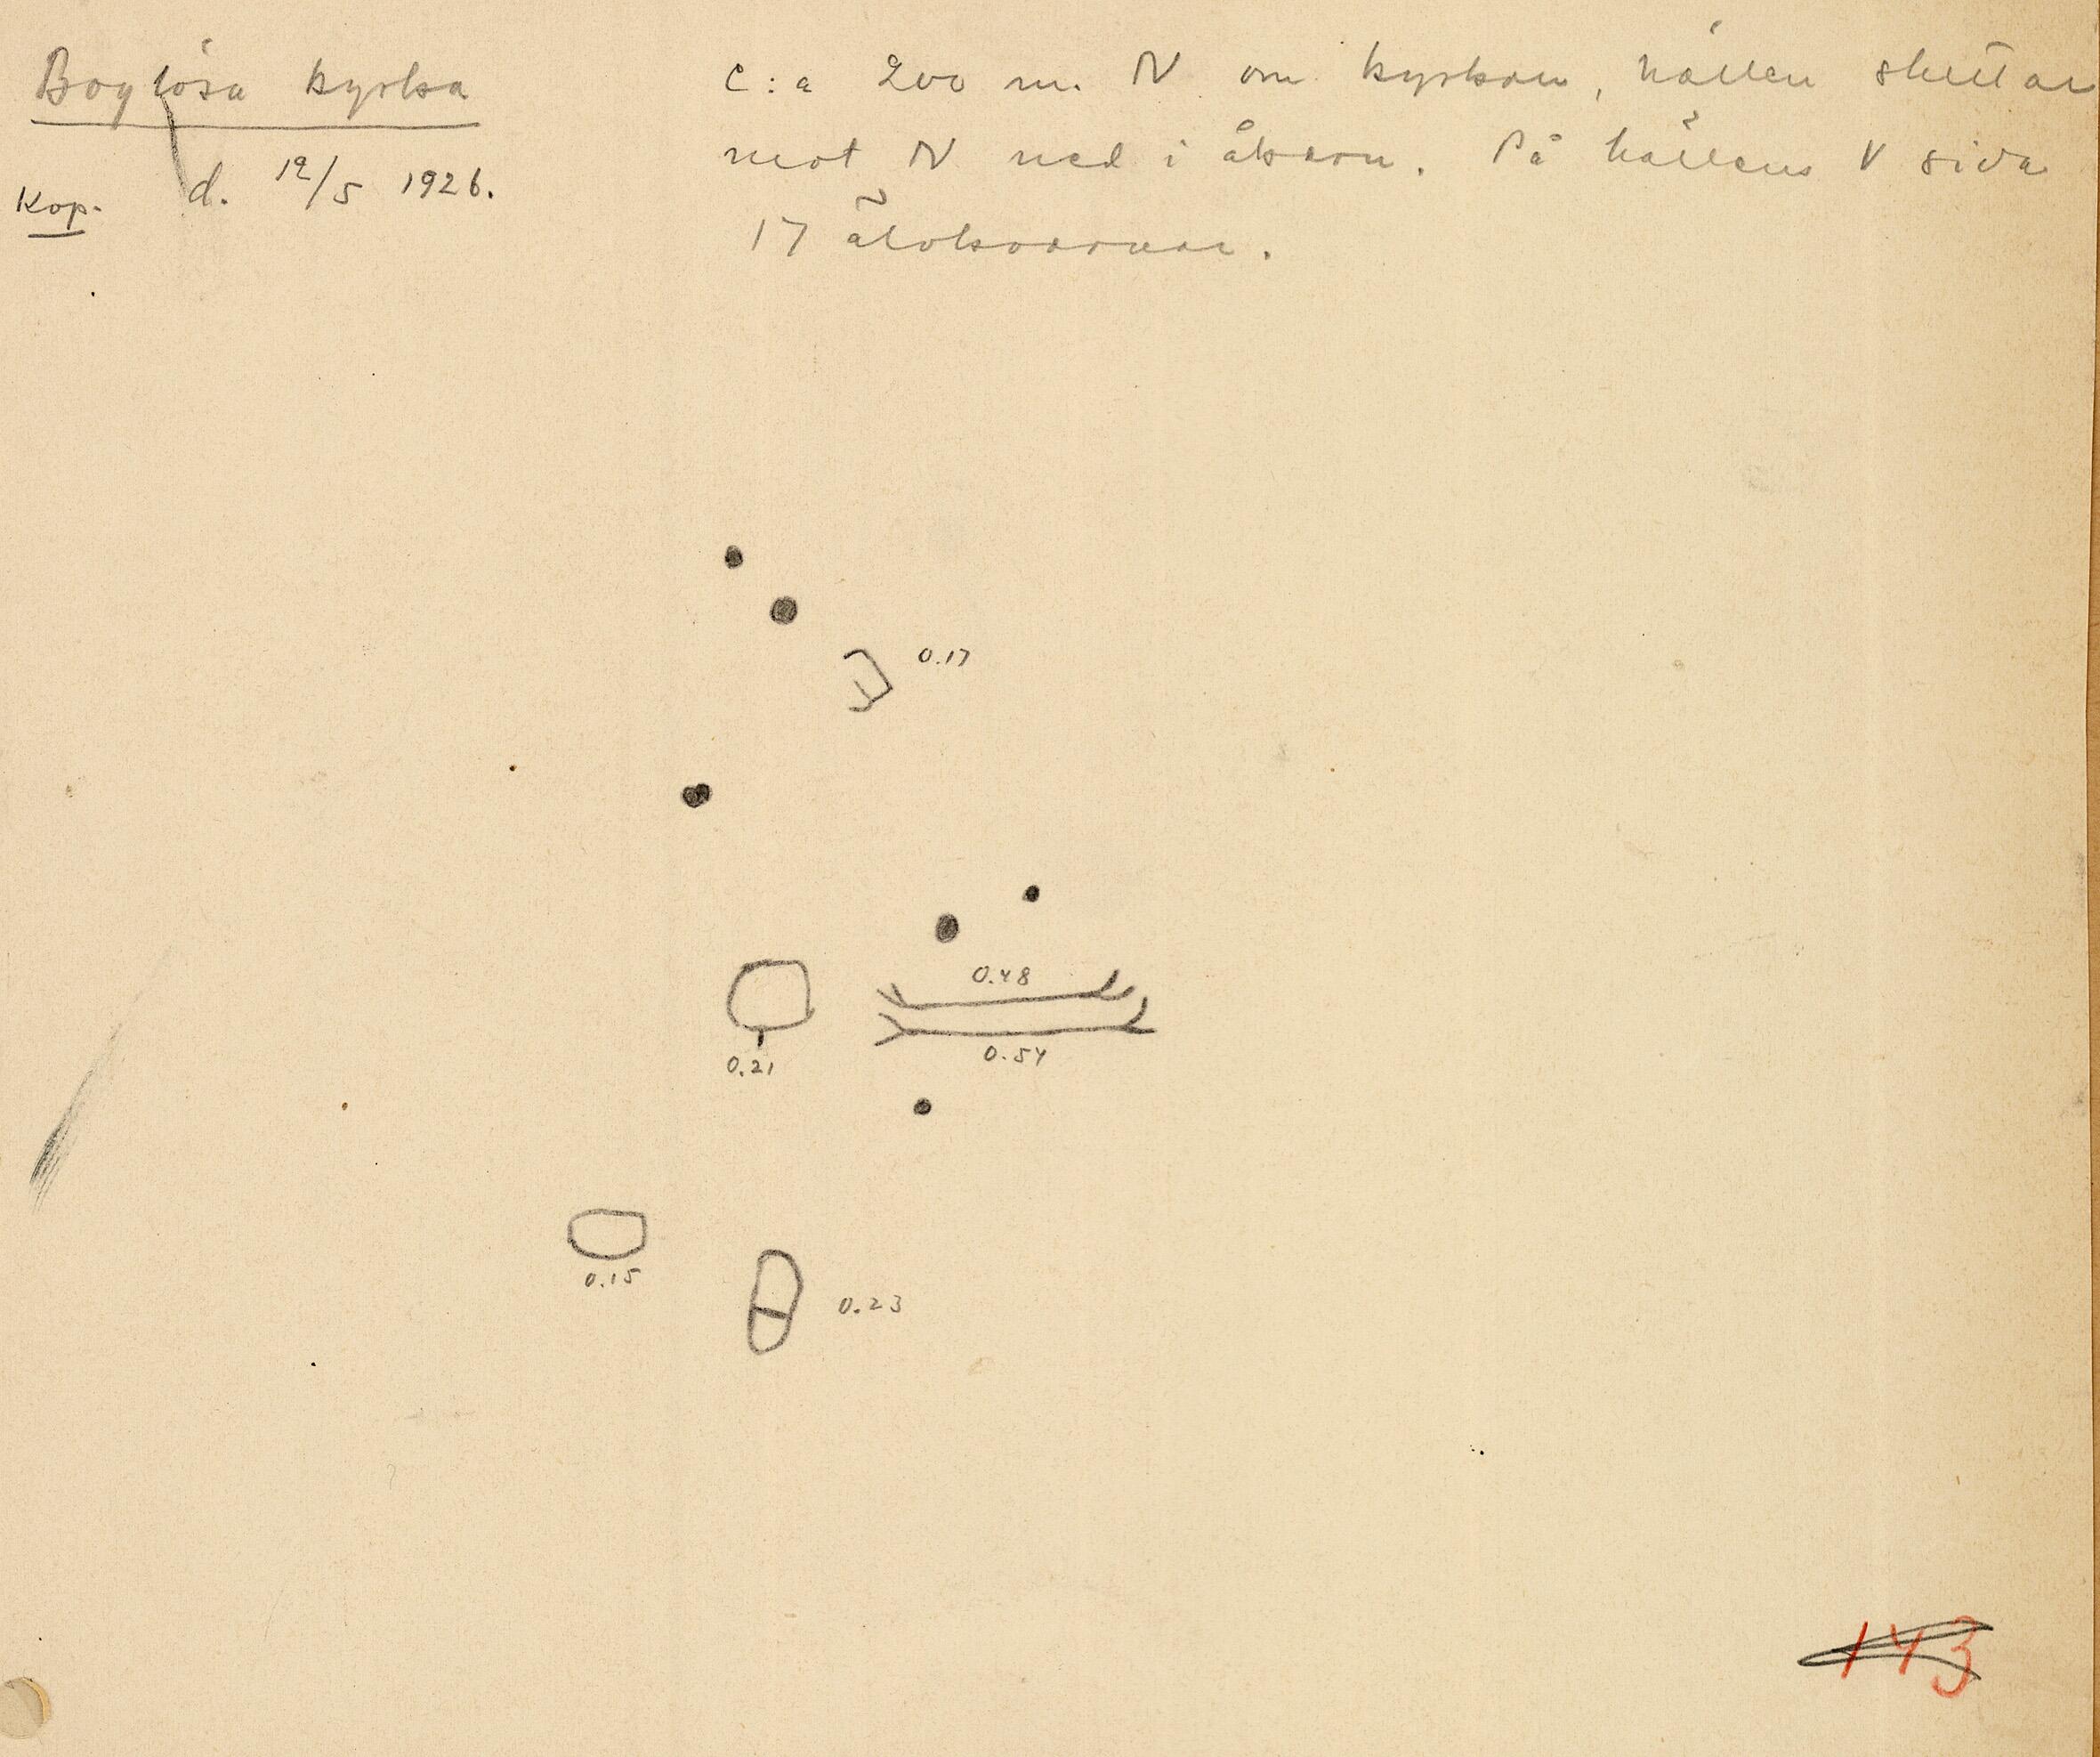 Boglösa kyrka
Kop. d. 12/5 1926.
C:a 200 m. N om kyrkan, hällen sluttar
mot N ned i åkern. På hällens V sida
17 älvkvarnar.
0.17
0.48
0.54
0.21
0.15
0.23
143